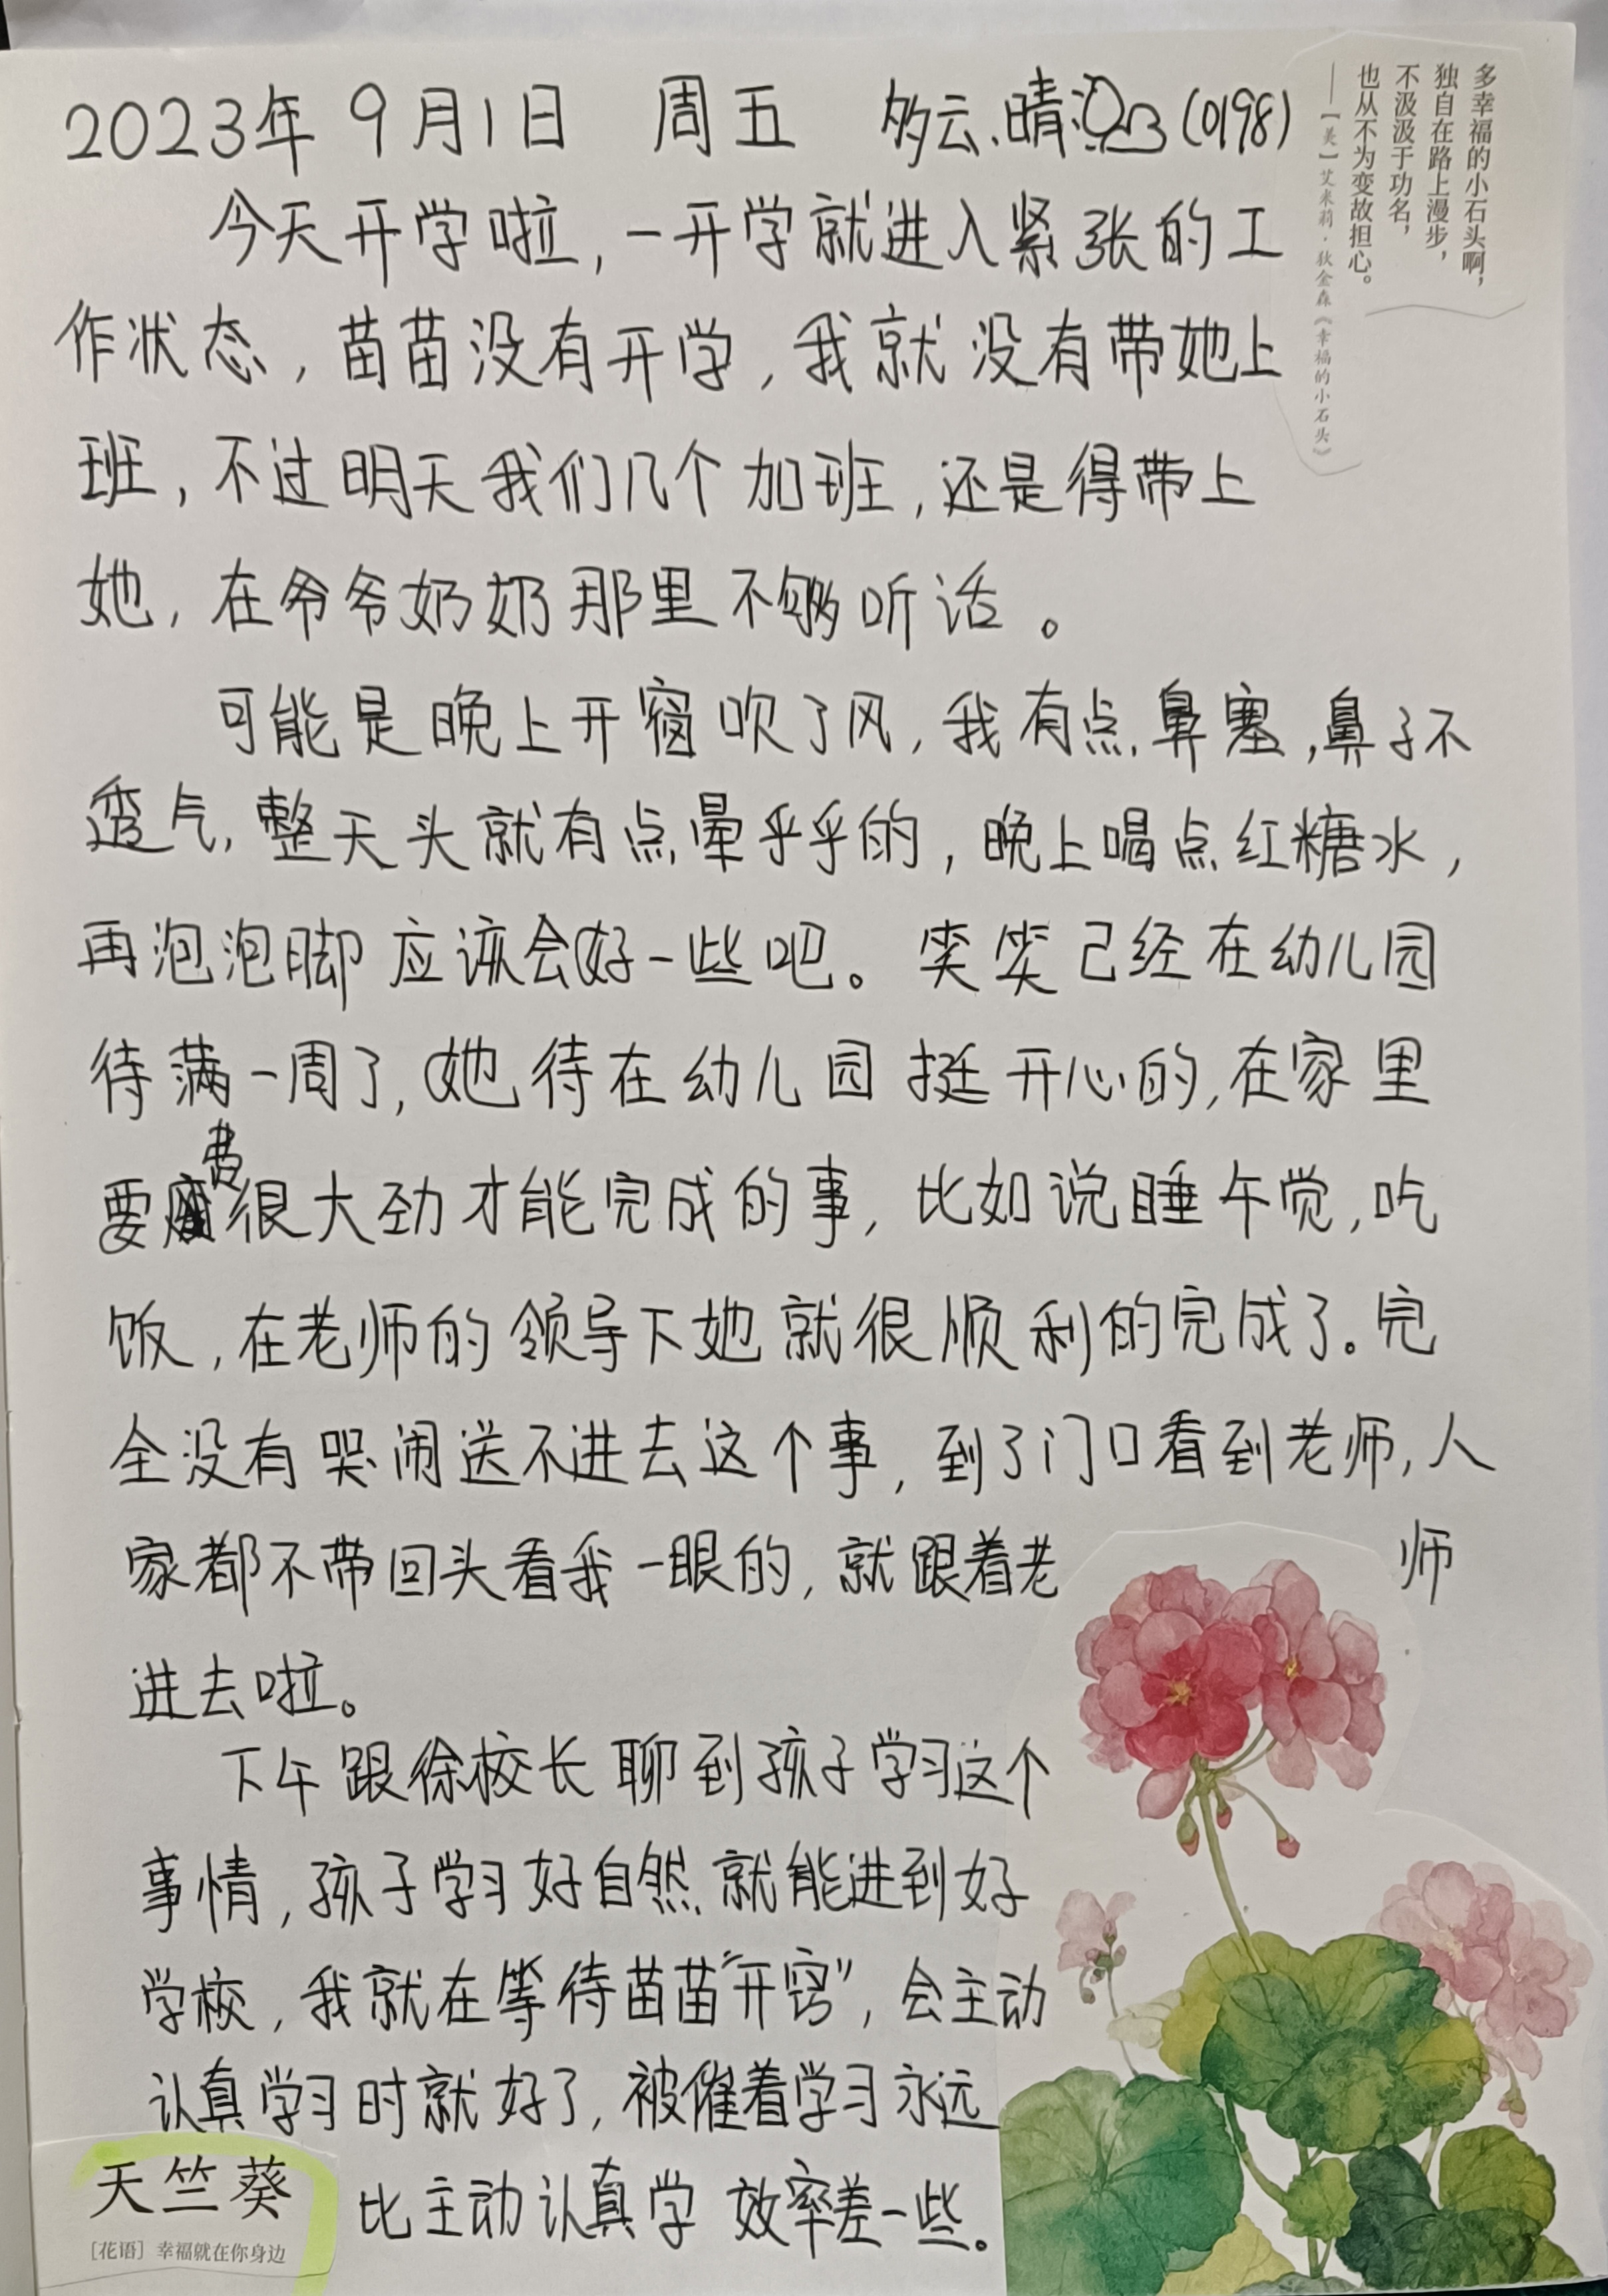 2023年9月1日 周五 多云、晴(0198)
今天开学啦，一开学就进入紧张的工
作状态，苗苗没有开学，我就没有带她上
班，不过明天我们几个加班，还是得带上
她，在爷爷奶奶那里不够听话。
可能是晚上开窗吹了风，我有点鼻塞，鼻子不
透气，整天头就有点晕乎乎的，晚上喝点红糖水，
再泡泡脚应该会好一些吧。笑笑已经在幼儿园
待满一周了，她待在幼儿园挺开心的，在家里
要费很大劲才能完成的事，比如说睡午觉，吃
饭，在老师的领导下她就很顺利的完成了。完
全没有哭闹送不进去这个事，到了门口看到老师，人
家都不带回头看我一眼的，就跟着老师
进去啦。
下午跟徐校长聊到孩子学习这个
事情，孩子学习好自然就能进到好
学校，我就在等待苗苗“开窍”，会主动
认真学习时就好了，被催着学习永远
比主动认真学效率差一些。
多幸福的小石头啊，
独自在路上漫步，
不汲汲于功名，
也从不为变故担心。
——［美］艾米莉·狄金森《幸福的小石头》
天竺葵
［花语］幸福就在你身边